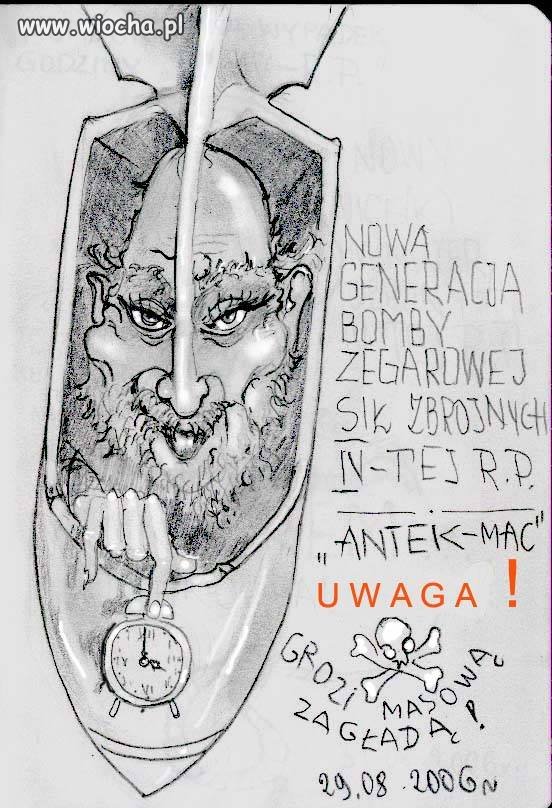 www.wiocha.pl
NOWA
GENERACJA
BOMBY
ZEGAROWEJ
SIŁ ZBROJNYCH
IV-TEJ R.P.
„ANTEK-MAC"
UWAGA !
GROZI MASOWĄ
ZAGŁADĄ !
29.08.2006r